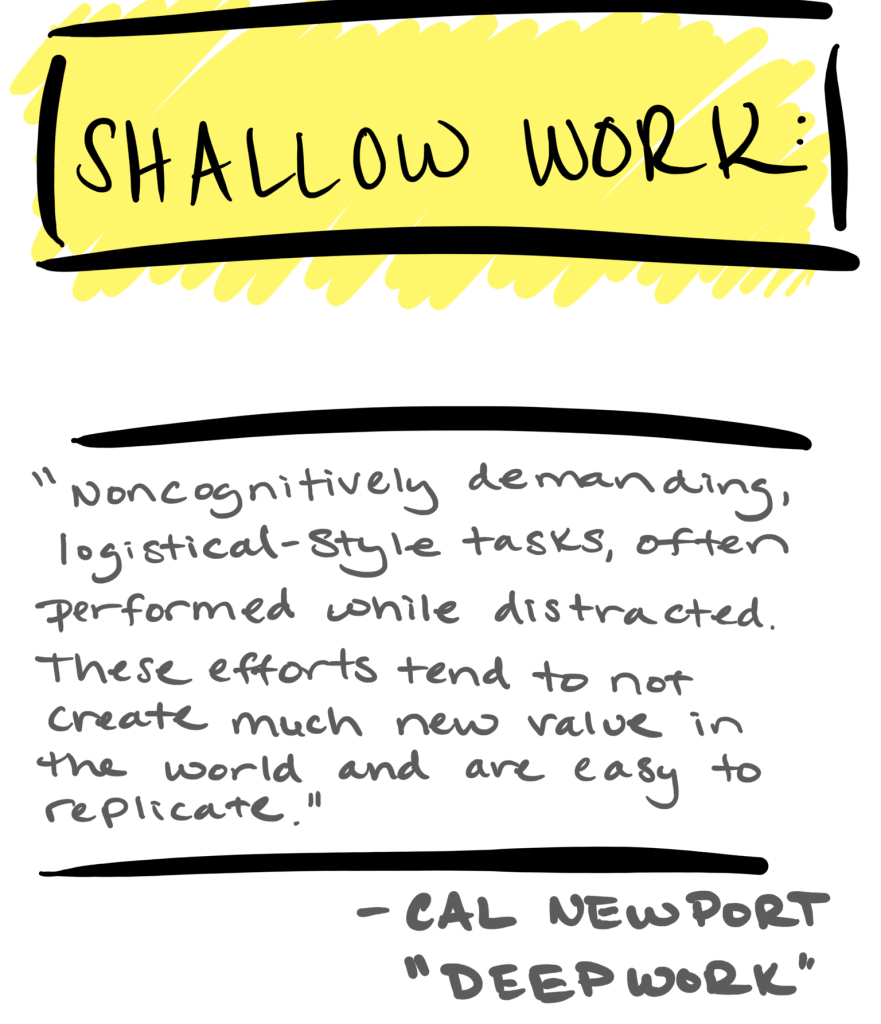 SHALLOW WORK:
"Noncognitively demanding,
logistical-style tasks, often
performed while distracted.
These efforts tend to not
create much new value in
the world and are easy to
replicate."
- CAL NEWPORT
"DEEP WORK"